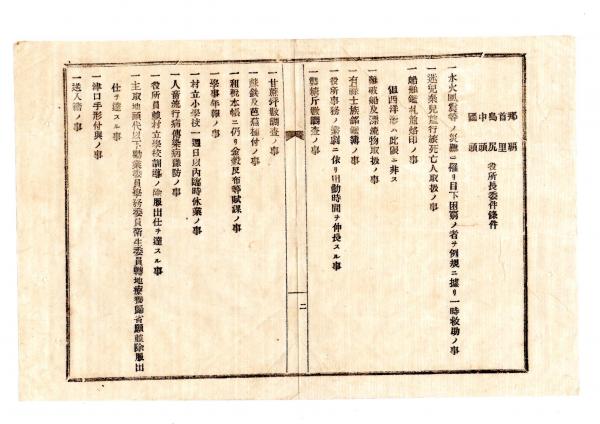 那覇
首里
島尻
中頭
國頭
役所長委件條件
一水火風災等ノ災難ニ罹リ目下困窮ノ者ヲ例規ニ據リ一時救助ノ事
一迷兒棄兒及行旅死亡人取扱ノ事
一船艦鑑札並烙印ノ事
一難破船及漂流物取扱ノ事
但西洋形ハ此限ニ非ス
一有祿士族部籍簿ノ事
一役所事務ノ繁劇ニ依リ出勤時間ヲ伸長スル事
一鰹節斤數調査ノ事
一甘蔗坪數調査ノ事
一蘇鉄及芭蕉植付ノ事
一租税本帳ニ仍リ金穀反布等賦課ノ事
一學事年報ノ事
一村立小學校一週日以內臨時休業ノ事
一人畜流行病傳染病豫防ノ事
一役所員並村立學校訓導ノ除服出仕ヲ達スル事
一主取地頭代以下勸業委員學務委員衛生委員轉地療養歸省願並除服出
仕ヲ達スル事
一津口手形付與ノ事
一送入籍ノ事
二